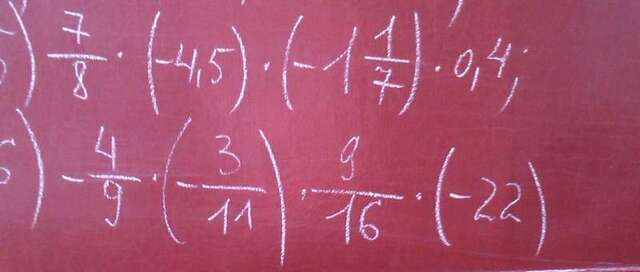 ) 7/8 · (-4,5) · (-1 1/7) · 0,4;
б) -4/9 · (-3/11) · 9/16 · (-22)